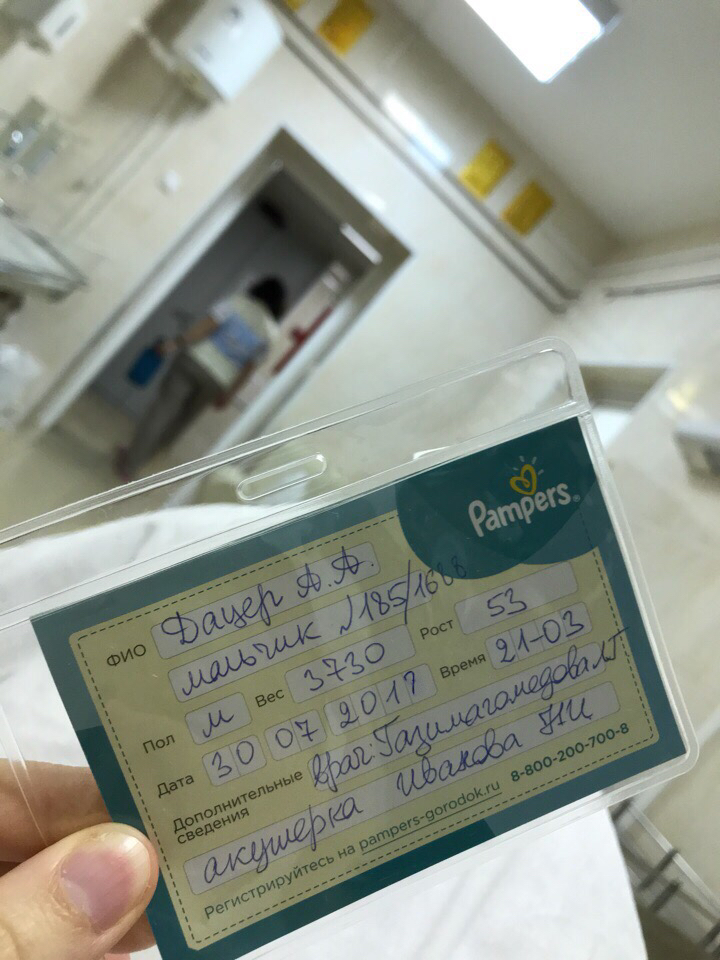 Pampers
ФИО Дацер А.А.
мальчик №185/1688
Пол м Вес 3730 Рост 53
Дата 30 07 2017 Время 21-03
Дополнительные сведения врач: Газимагомедова
акушерка Иванова НИ
Регистрируйтесь на pampers-gorodok.ru 8-800-200-700-8